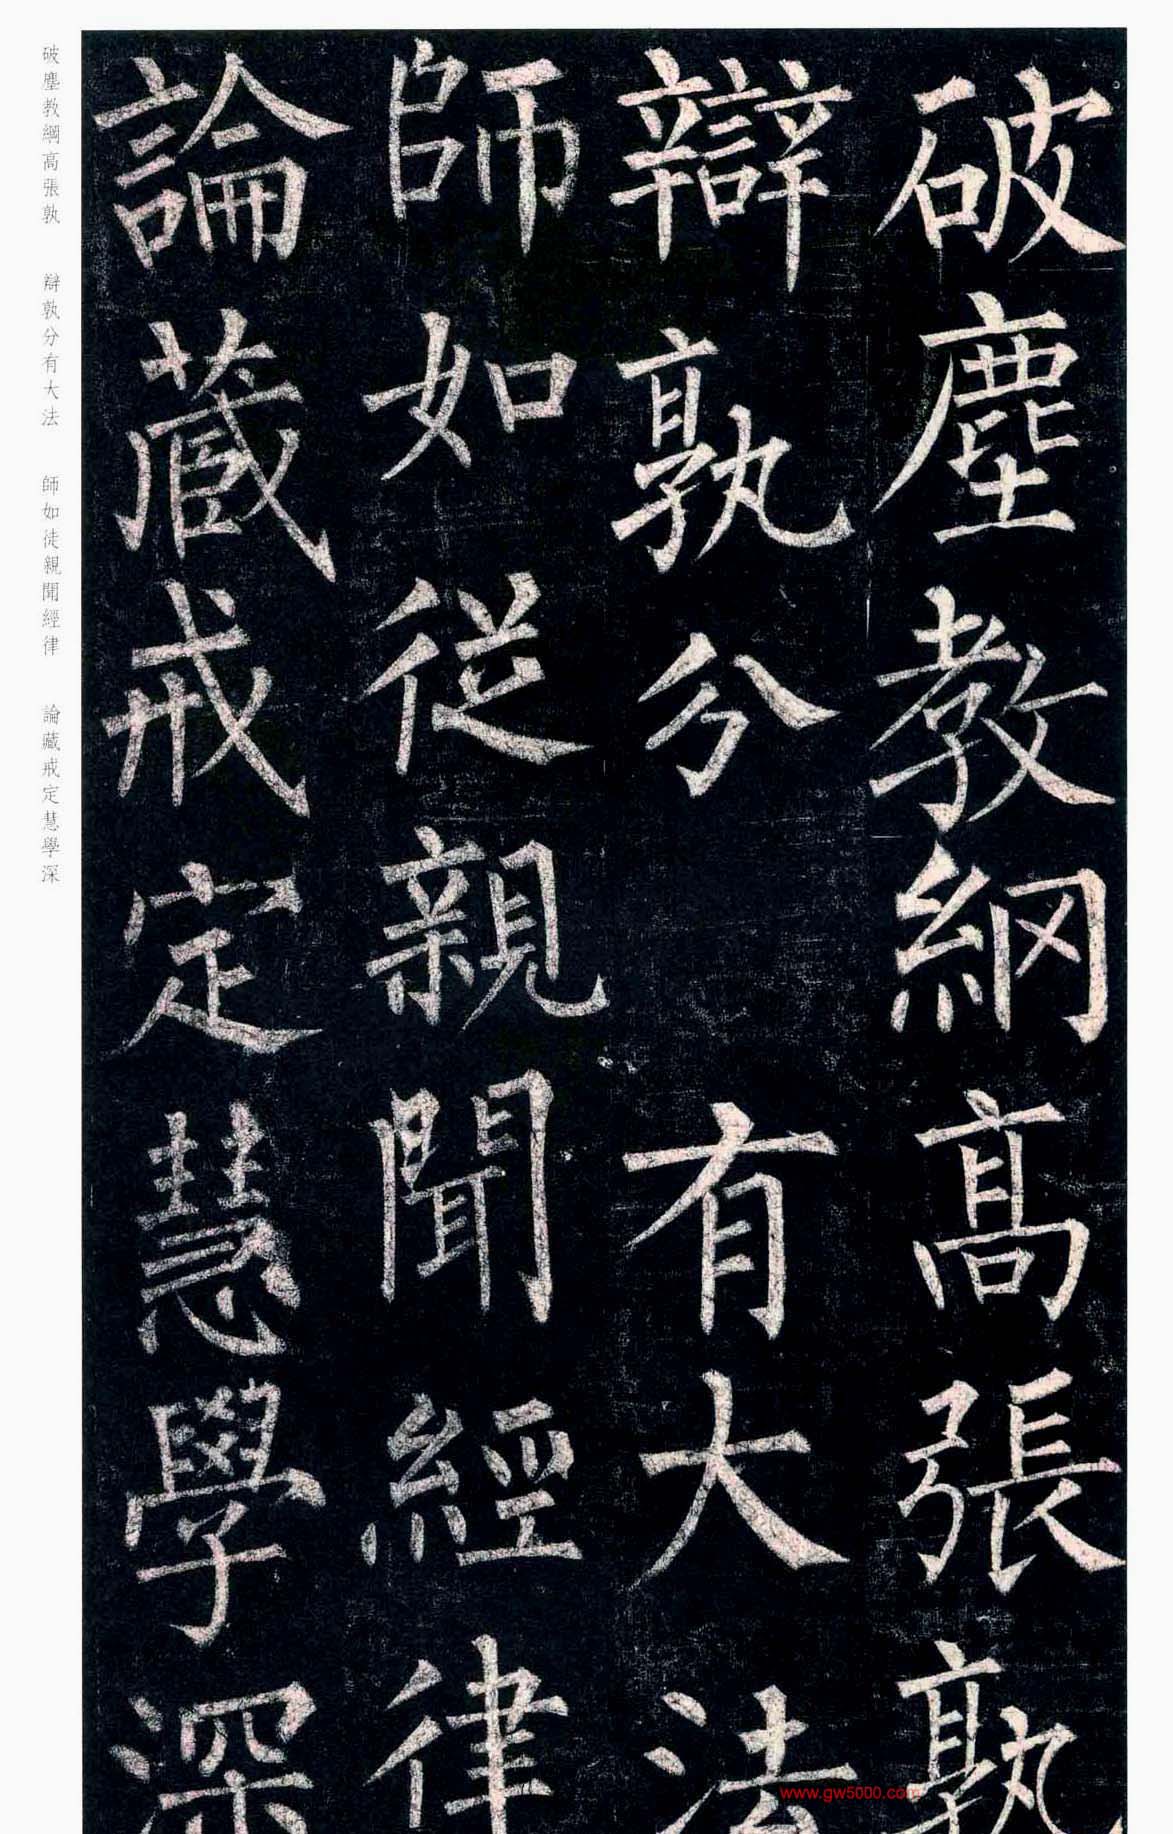 破塵教綱高張孰
辯孰分有大法
師如從親聞經律
論藏戒定慧學深
破塵教綱高張孰 辯孰分有大法 師如徒親聞經律 論藏戒定慧學深
www.gw5000.com